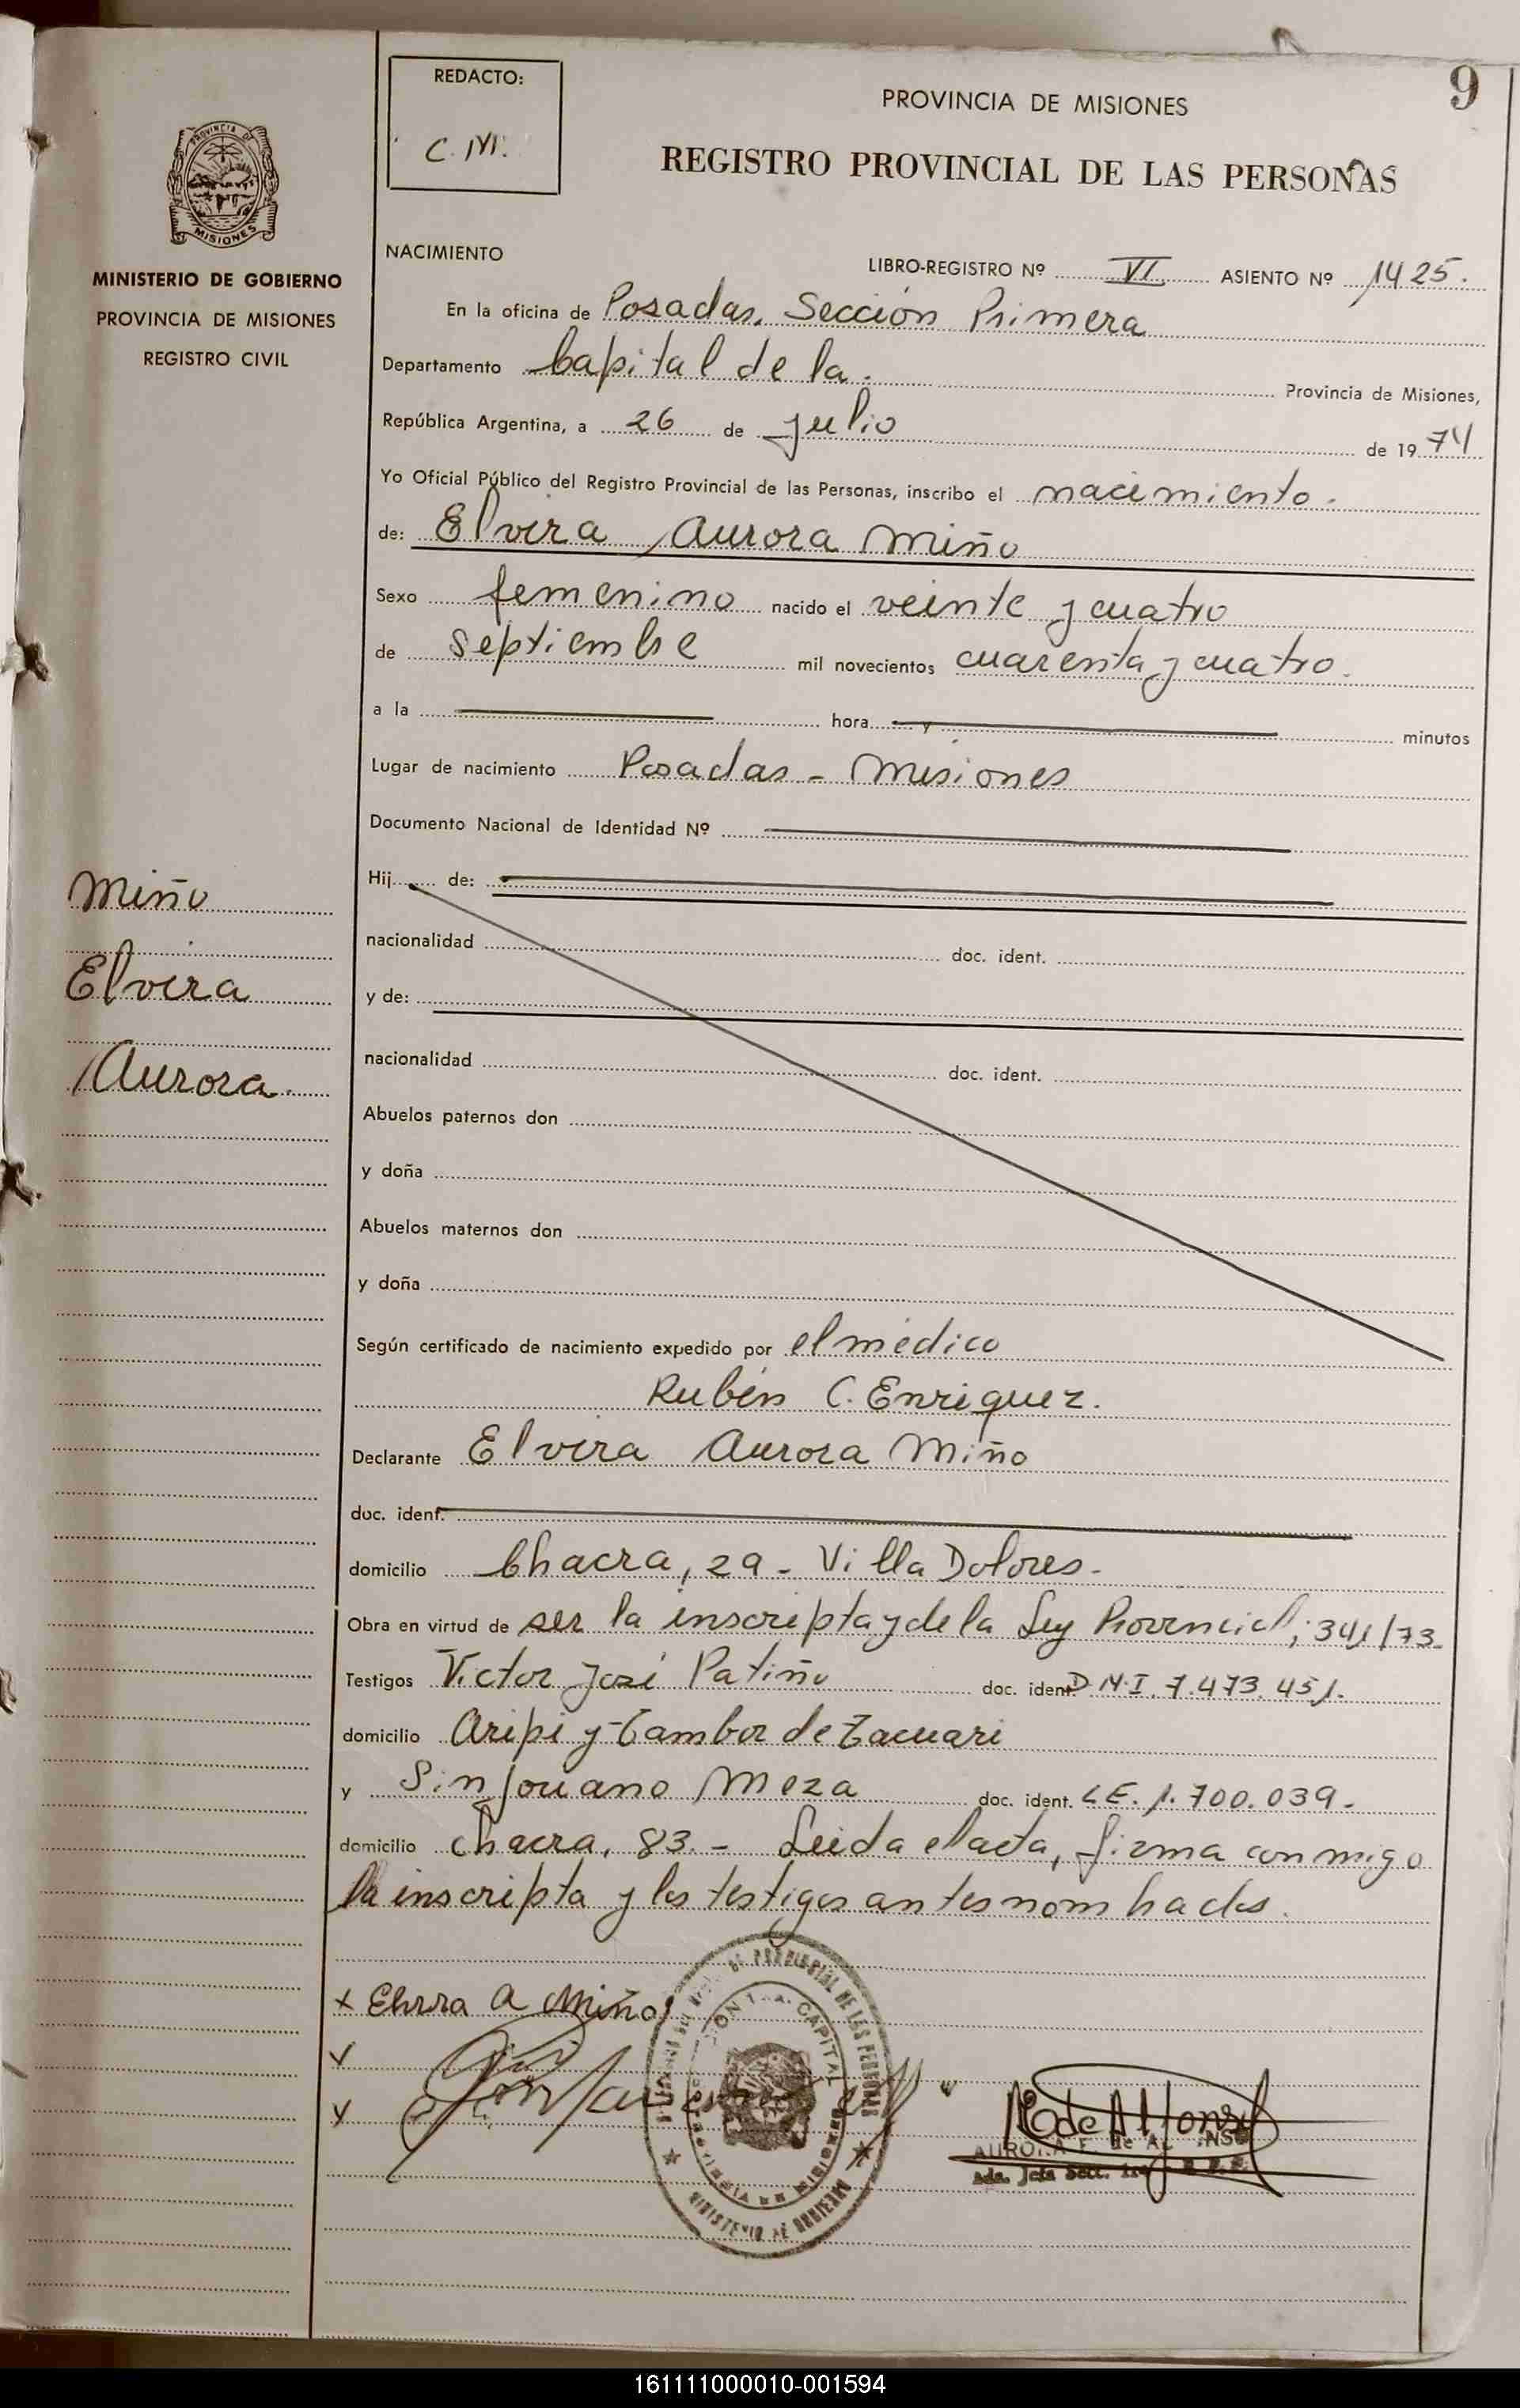 9
REDACTO:
C. M.
PROVINCIA DE MISIONES
REGISTRO PROVINCIAL DE LAS PERSONAS
PROVINCIA DE
MISIONES
MINISTERIO DE GOBIERNO
PROVINCIA DE MISIONES
REGISTRO CIVIL
NACIMIENTO
LIBRO-REGISTRO Nº VI ASIENTO Nº 1425.
En la oficina de Posadas, Sección Primera
Departamento Capital de la. Provincia de Misiones,
República Argentina, a 26 de julio de 1974
Yo Oficial Público del Registro Provincial de las Personas, inscribo el nacimiento.
de: Elvira Aurora Miño
Sexo femenino nacido el veinte y cuatro
de septiembre mil novecientos cuarenta y cuatro.
a la hora y minutos
Lugar de nacimiento Posadas - Misiones
Documento Nacional de Identidad Nº
Hij de:
Miño
nacionalidad doc. ident.
Elvira
y de:
Aurora.
nacionalidad doc. ident.
Abuelos paternos don
y doña
Abuelos maternos don
y doña
Según certificado de nacimiento expedido por el médico
Rubén C. Enriquez.
Declarante Elvira Aurora Miño
doc. ident.
domicilio Chacra, 29 - Villa Dolores -
Obra en virtud de ser la inscripta y de la Ley Provincial; 341/73
Testigos Victor José Patiño doc. ident. D.N.I. 7.473.451.
domicilio Aripi y Tambor de Tacuari
y Sinforiano Meza doc. ident. L E. 1.700.039.-
domicilio chacra, 83.- Leida el acta, firma conmigo
la inscripta y los testigos antes nombrados.
x Elvira A Miño
y
y
PROVINCIAL DE LAS PERSONAS
CAPITAL
MINISTERIO DE GOBIERNO
AURORA F. de ALFONSO